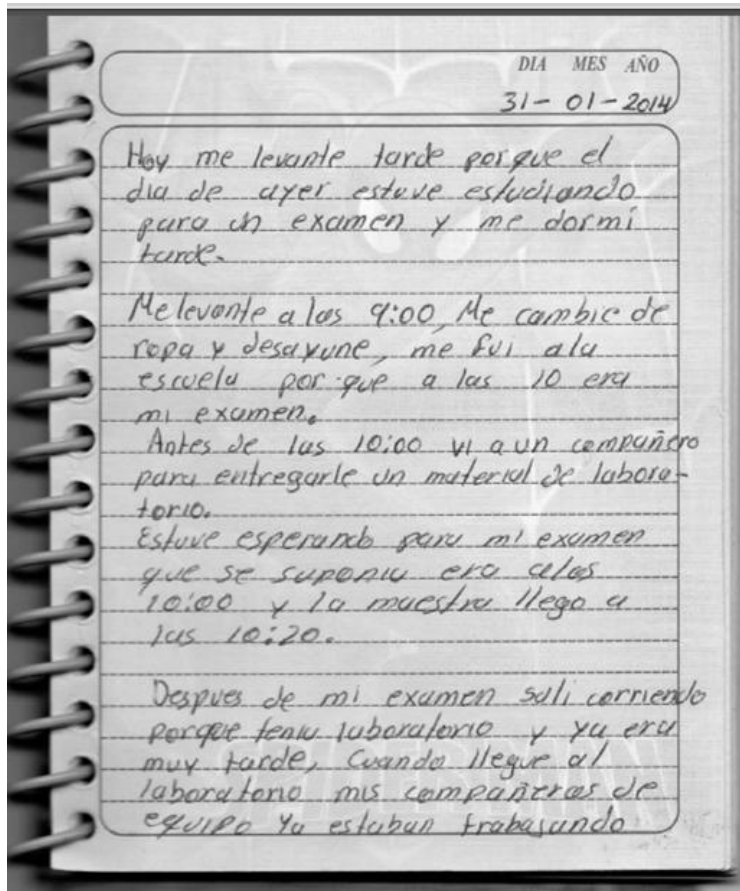 DIA MES AÑO
31- 01- 2014
Hoy me levante tarde porque el
dia de ayer estuve estudiando
para un examen y me dormi
tarde.
Me levante a las 9:00, Me cambie de
ropa y desayune, me fui ala
escuela por que a las 10 era
mi examen.
Antes de las 10:00 vi a un compañero
para entregarle un material de labora-
torio.
Estuve esperando para mi examen
que se suponia era alas
10:00 y la maestra llego a
las 10:20.
Despues de mi examen sali corriendo
porque tenia laboratorio y ya era
muy tarde, Cuando llegue al
laboratorio mis compañeros de
equipo Ya estaban trabajando
SPIDERMAN